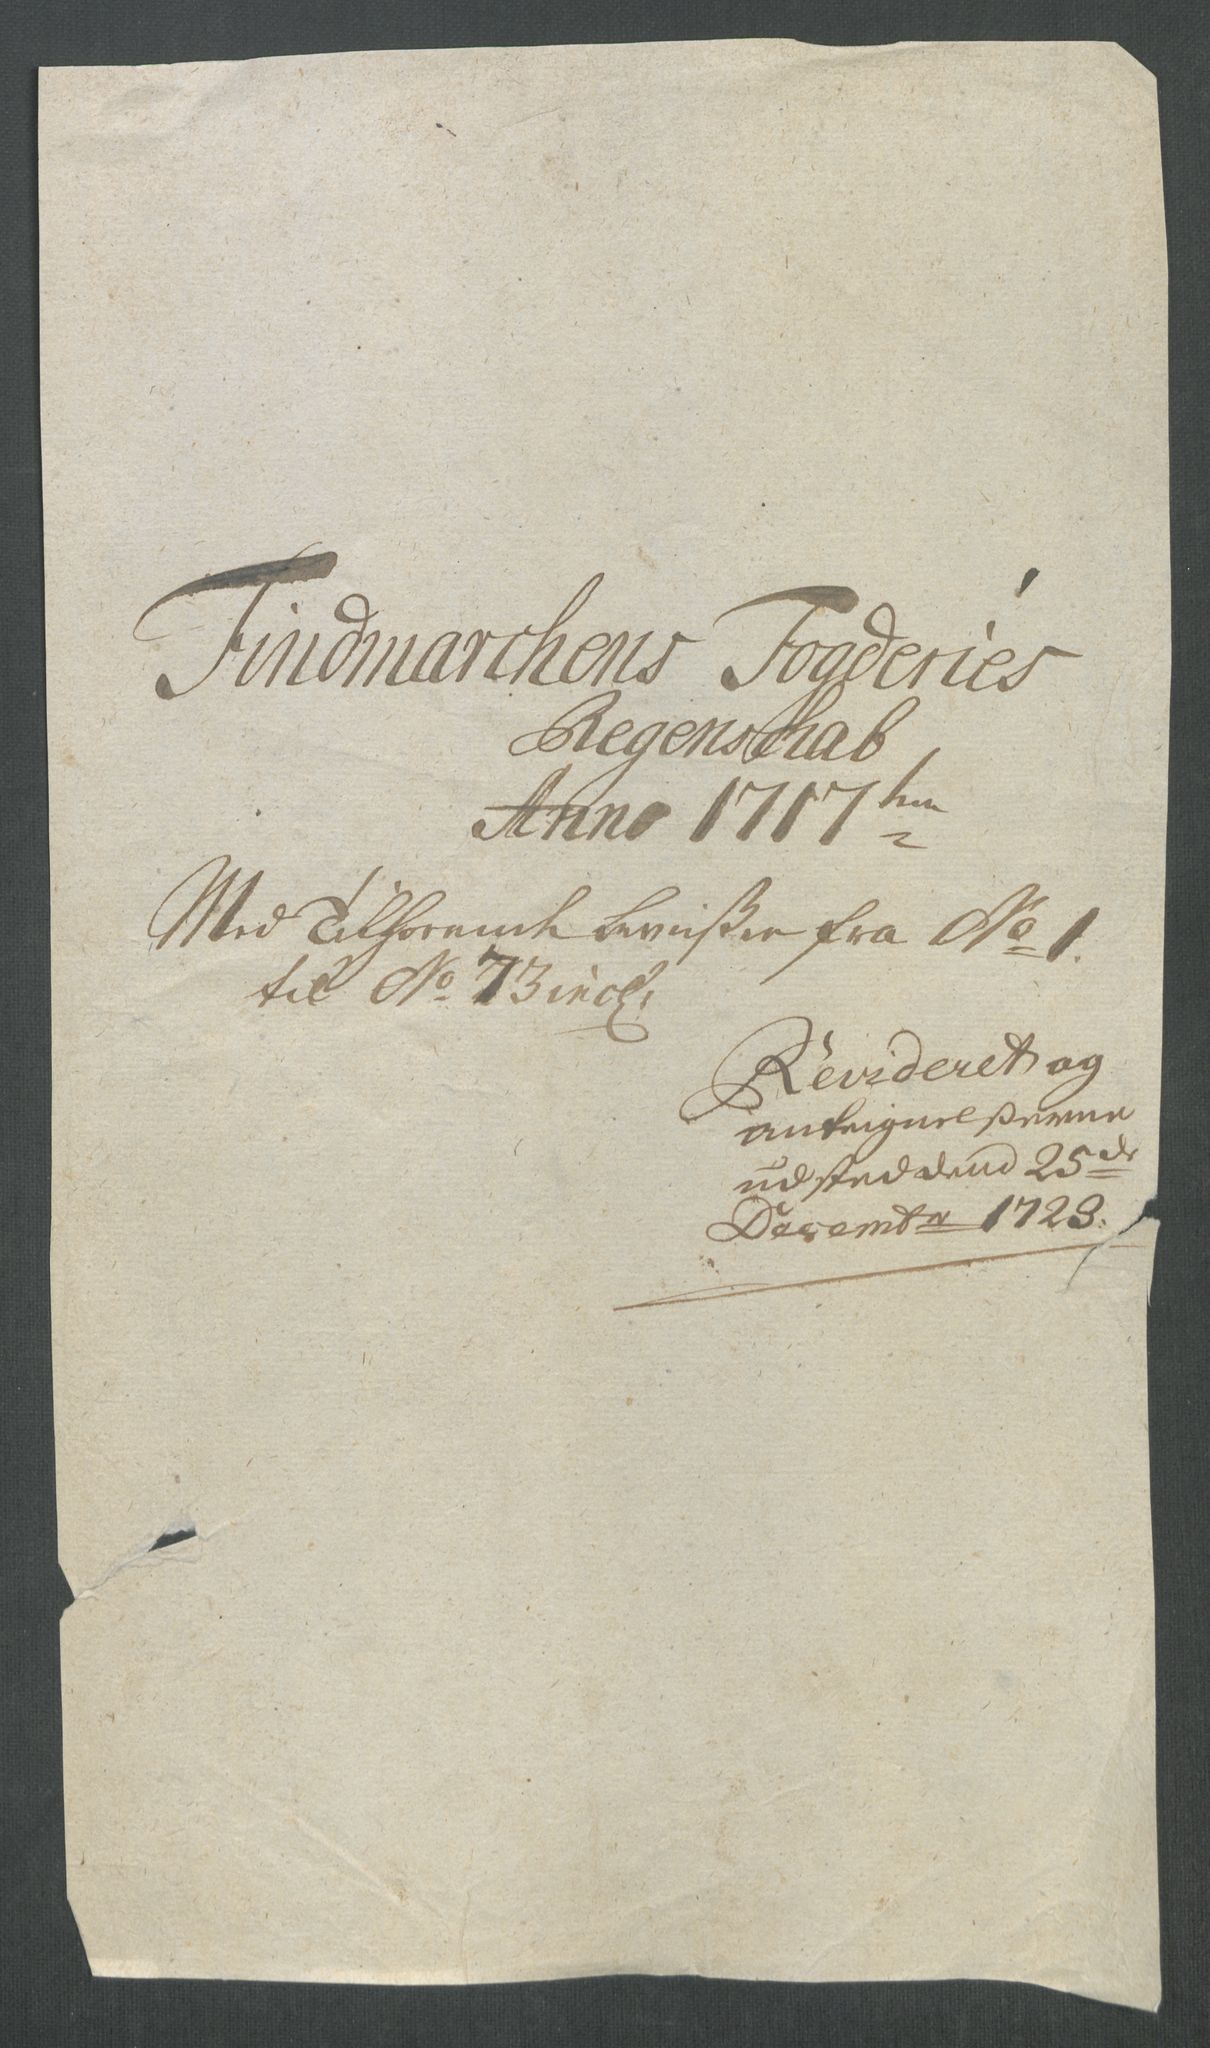 Findmarchens Fogderies
Regenschab
Anno 1717
Med Tilhörende beviißer fra No 1.
til No 73 incl:
Revideret og
anteignelßerne
udsted dend 25de
Decembr 1723.